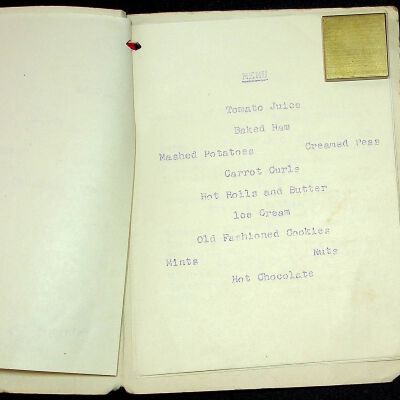 MENU
Tomato Juice
Baked Ham
Mashed Potatoes Creamed Peas
Carrot Curls
Hot Rolls and Butter
Ice Cream
Old Fashioned Cookies
Mints Nuts
Hot Chocolate